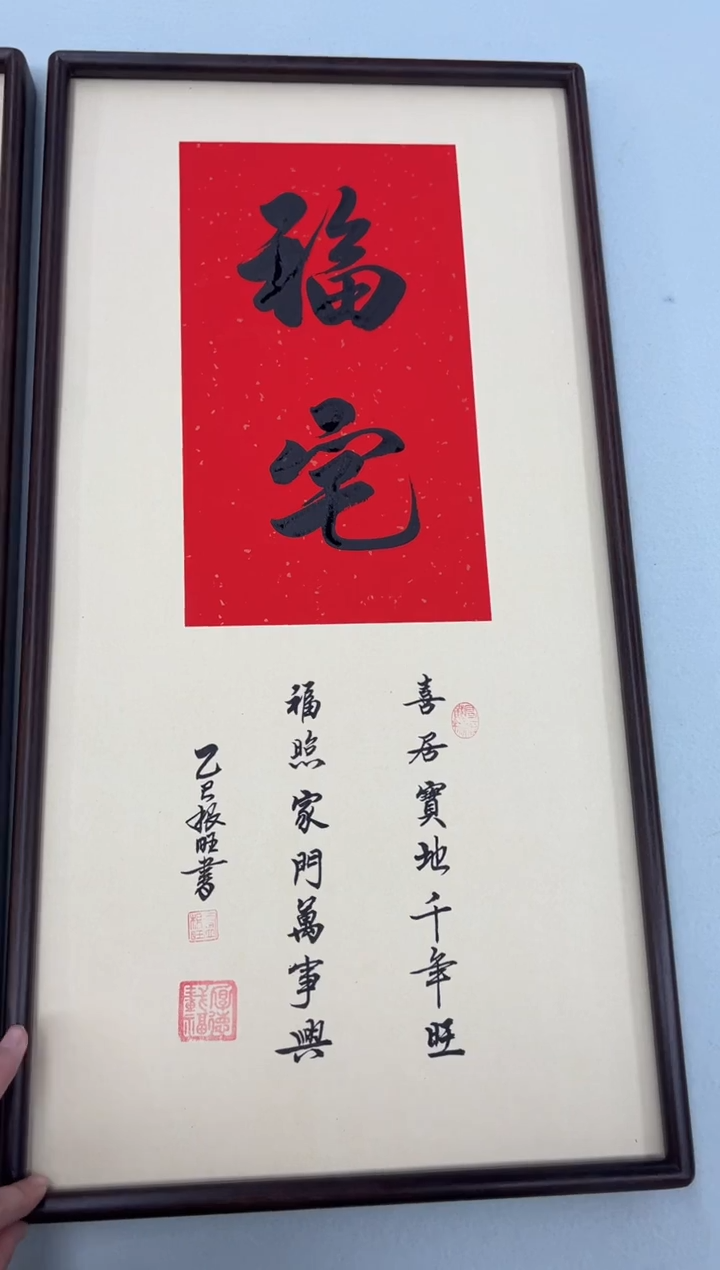 福宅
喜居寶地千年旺
福照家門萬事興
乙巳振旺書
厚德載福